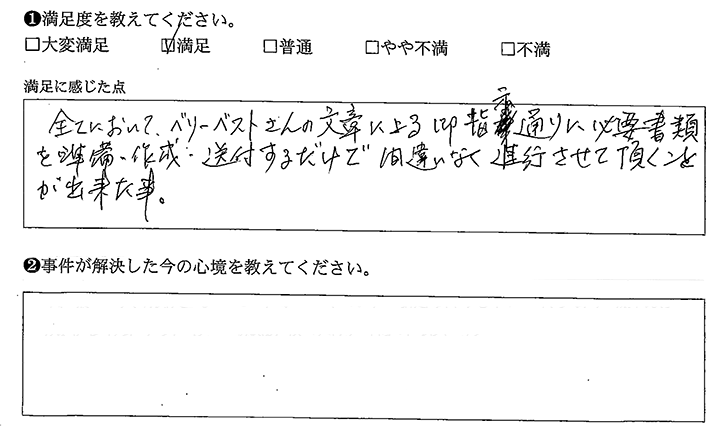 ❶満足度を教えてください。
□大変満足 ☑満足 □普通 □やや不満 □不満
満足に感じた点
全てにおいて、ベリーベストさんの文章による御指示通りに必要書類
を準備・作成・送付するだけで間違いなく進行させて頂くこと
が出来た事。
❷事件が解決した今の心境を教えてください。